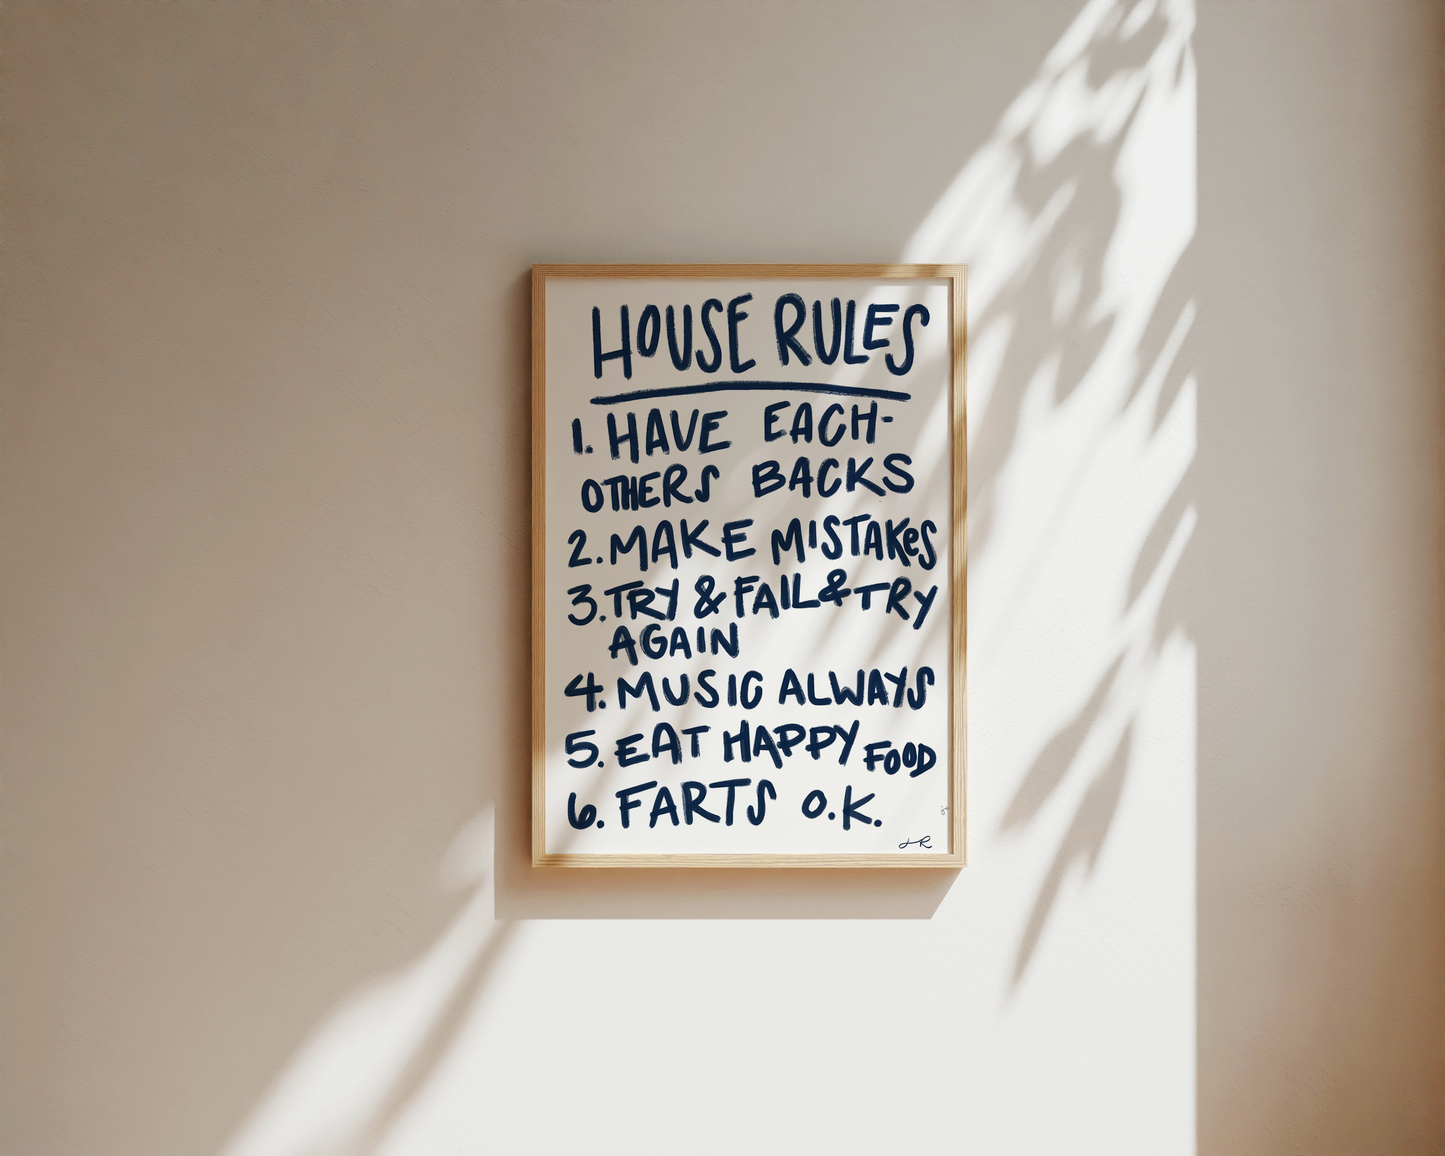 HOUSE RULES
1. HAVE EACH-
OTHERS BACKS
2. MAKE MISTAKeS
3. TRY & FAIL & TRY
AGAIN
4. MUSIC ALWAYS
5. EAT HAPPY FOOD
6. FARTS O.K.
JR